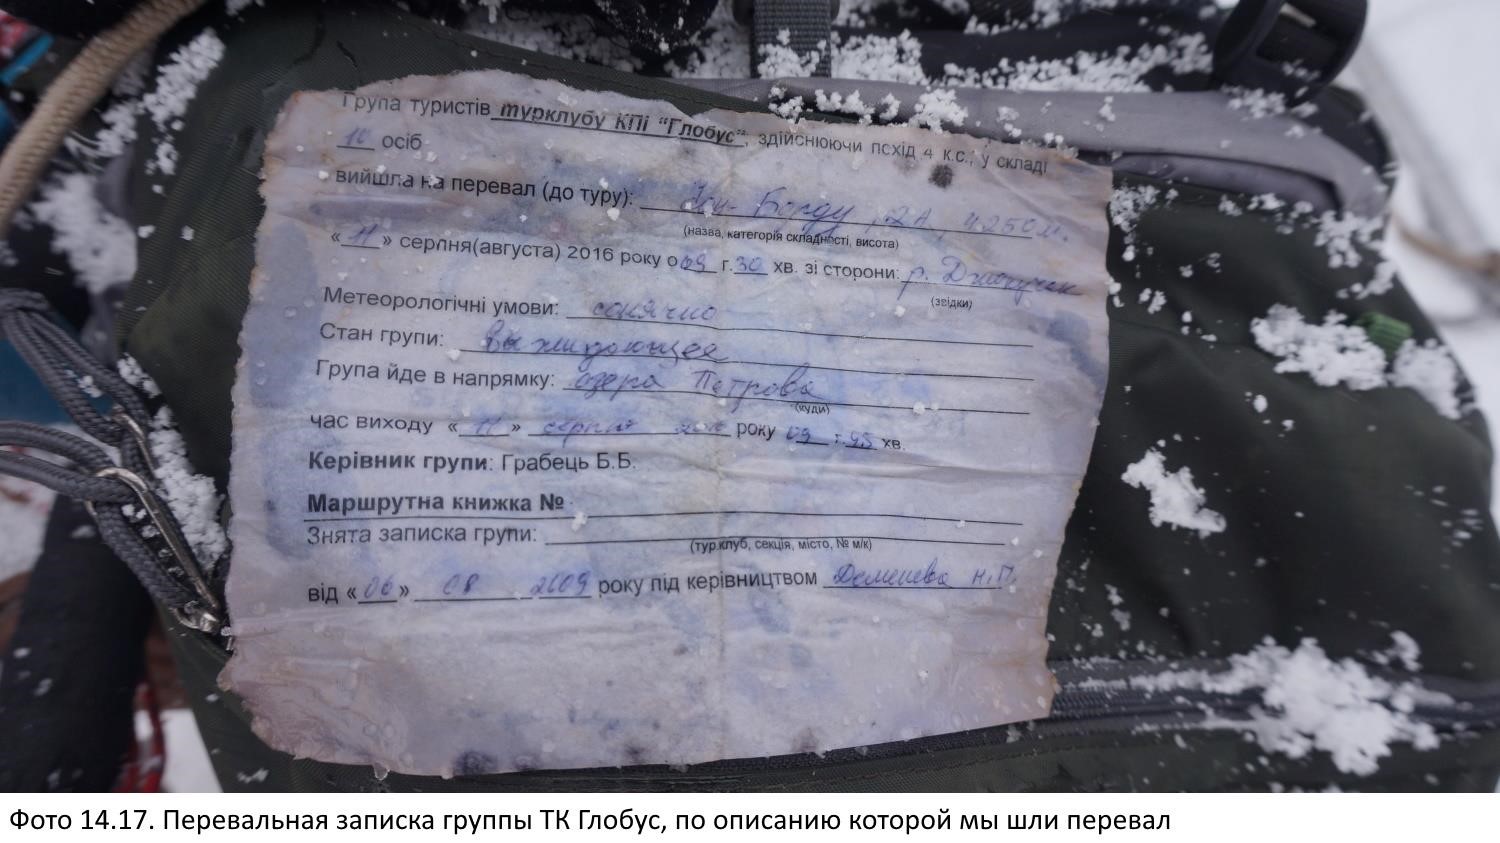 Група туристів турклубу КПі "Глобус", здійснюючи похід 4 к.с., у складі
10 осіб
вийшла на перевал (до туру): Борду, 2А, 4250м.
(назва, категорія складності, висота)
«11» серпня(августа) 2016 року о 09 г. 30 хв. зі сторони: р.
(звідки)
Метеорологічні умови: сонячно
Стан групи:
Група йде в напрямку: озера Петрова
(куди)
час виходу «11» серпня 2016 року 09 г. 45 хв.
Керівник групи: Грабець Б.Б.
Маршрутна книжка №
Знята записка групи:
(тур.клуб, секція, місто, № м/к)
від «06» 08 2009 року під керівництвом Н.П.
Фото 14.17. Перевальная записка группы ТК Глобус, по описанию которой мы шли перевал